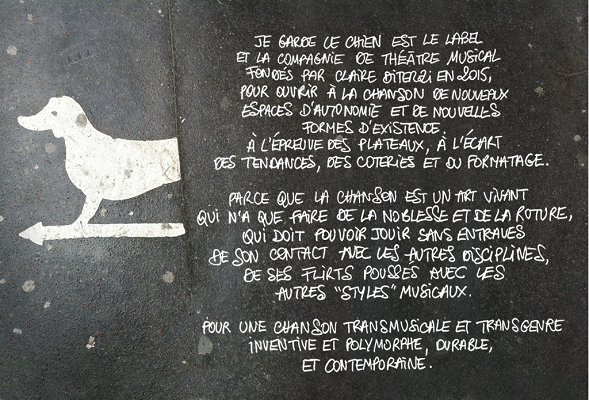 JE GARDE LE CHIEN EST LE LABEL
ET LA COMPAGNIE DE THÉÂTRE MUSICAL
FONDÉS PAR CLAIRE DITERZI EN 2015,
POUR OUVRIR À LA CHANSON DE NOUVEAUX
ESPACES D'AUTONOMIE ET DE NOUVELLES
FORMES D'EXISTENCE.
À L'ÉPREUVE DES PLATEAUX, À L'ÉCART
DES TENDANCES, DES COTERIES ET DU FORMATAGE.
PARCE QUE LA CHANSON EST UN ART VIVANT
QUI N'A QUE FAIRE DE LA NOBLESSE ET DE LA ROTURE,
QUI DOIT POUVOIR JOUIR SANS ENTRAVES
DE SON CONTACT AVEC LES AUTRES DISCIPLINES,
DE SES FLIRTS POUSSÉS AVEC LES
AUTRES "STYLES" MUSICAUX.
POUR UNE CHANSON TRANSMUSICALE ET TRANSGENRE
INVENTIVE ET POLYMORPHE, DURABLE,
ET CONTEMPORAINE.